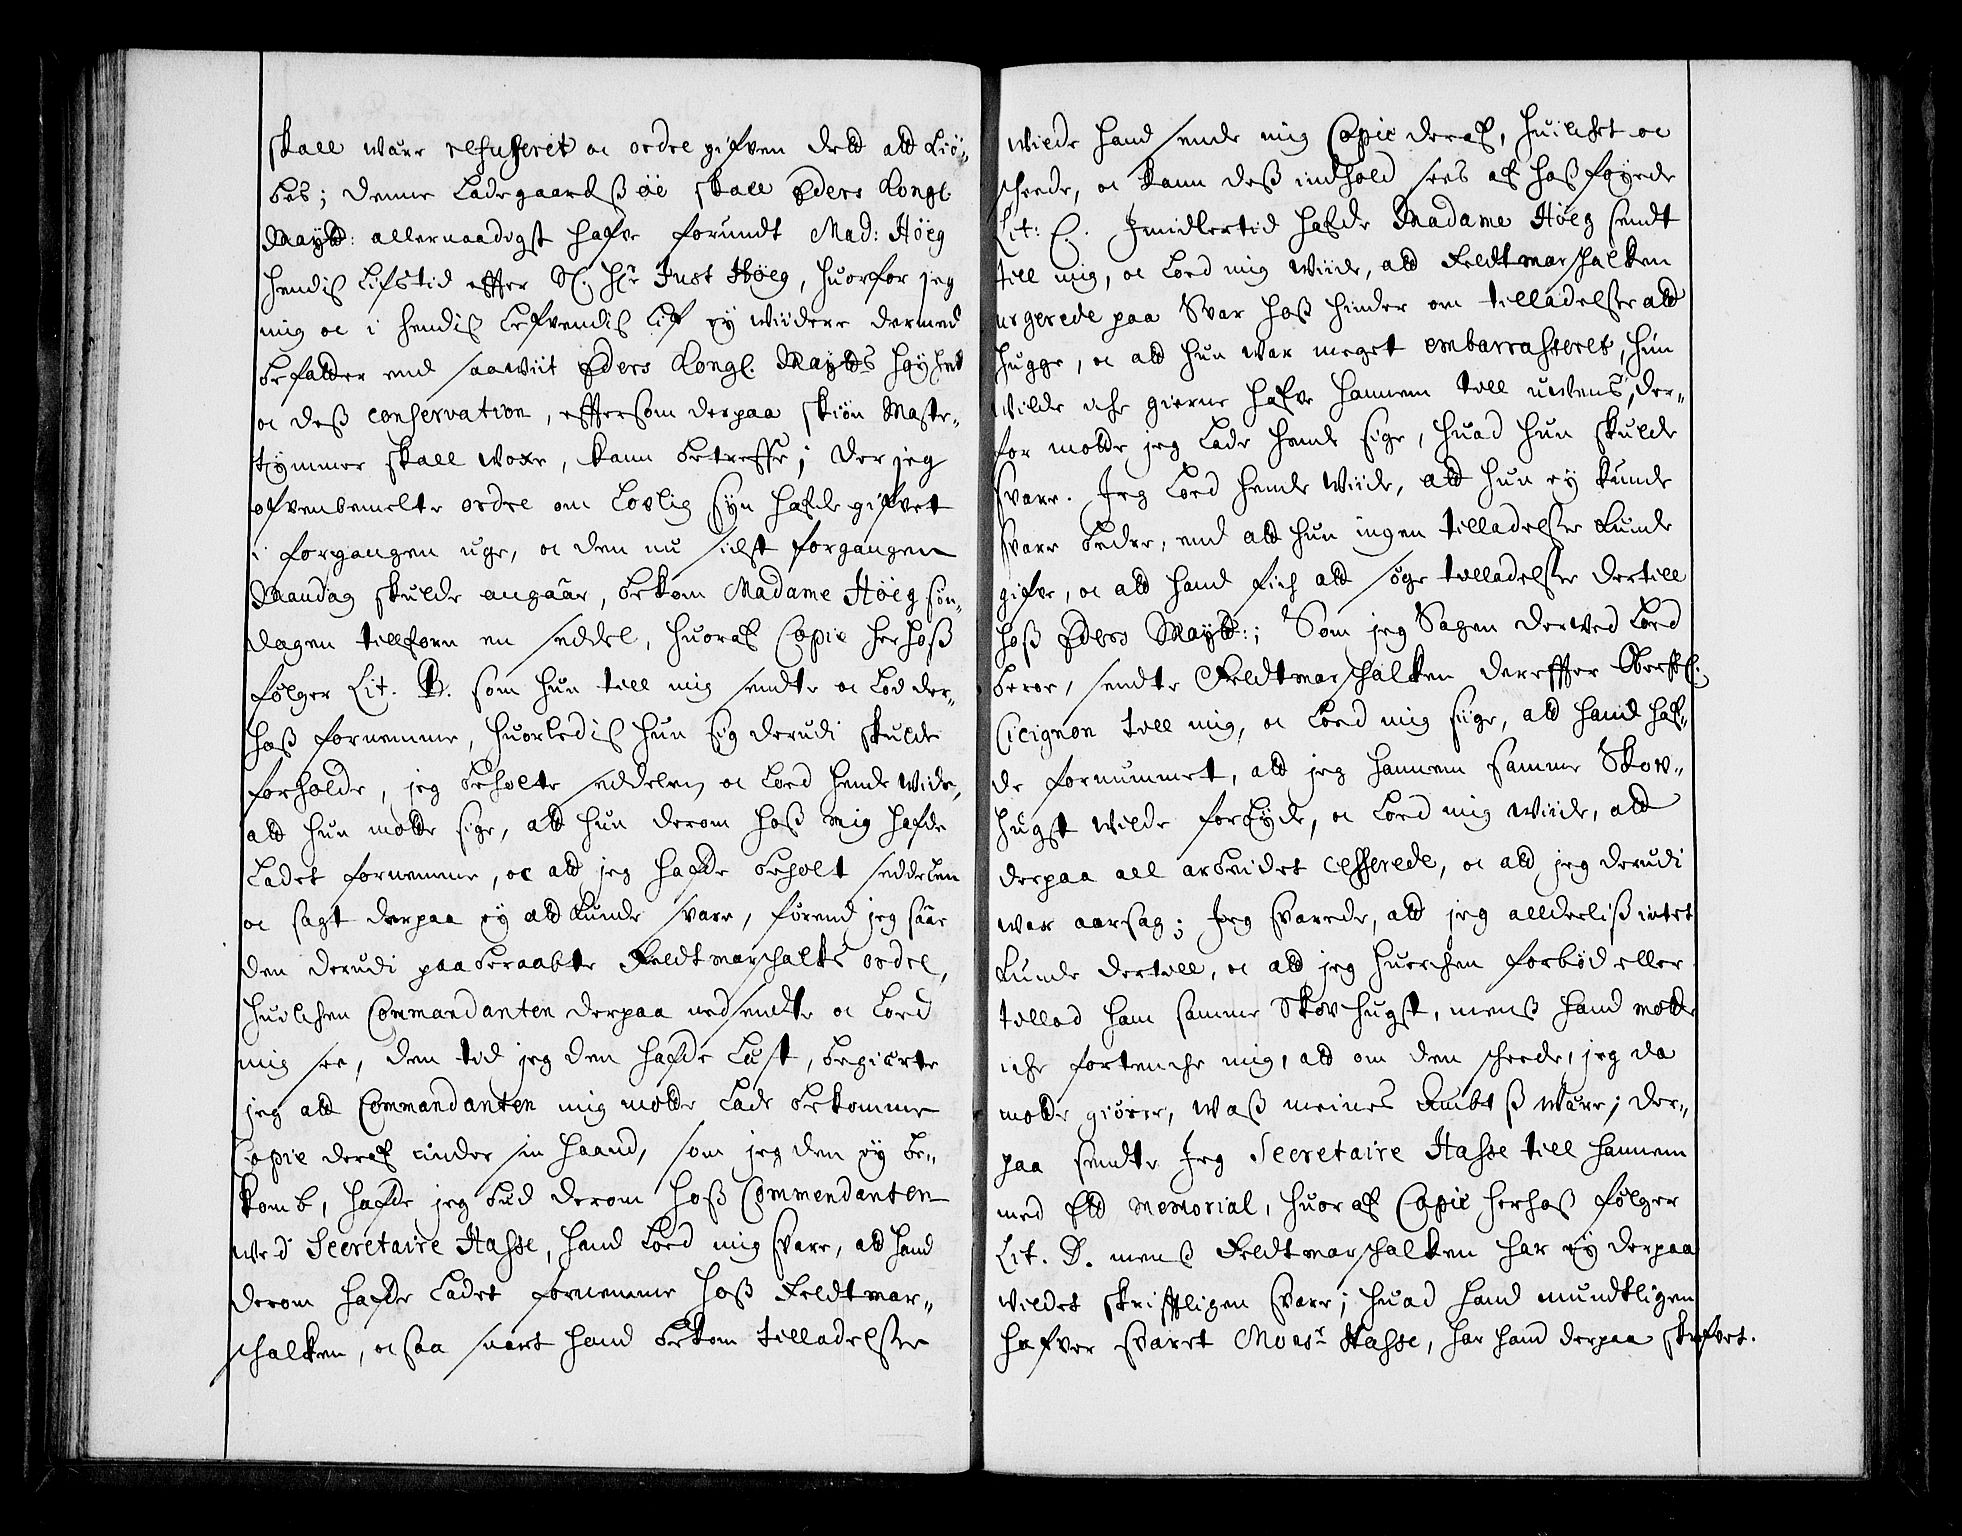 skall wære refuseret oc ordre gifven det at kiö-
bes; denne Ladegaardsß øe skall Eders Kongl.
Mayt: allernaadigst hafve forundt Mad: Höeg
hendiß Lifstid effter Sl. Hr Just Höeg, huorfor jeg
mig oc i hendiß Lefvendiß Lif ey wiidere dermed
befatter end saawiit Eders Kongl. Mayts høyhed
oc deß conservation, effterssom derpaa skiön Maste-
tymmer skall woxe, kann betreffe; der jeg
ofvenbemelte ordre om Lovlig syn hafde gifvet
i forgangen uge, oc den nu sidst forgangen
Mandag skulde angaar, bekom Madame Höeg søn-
dagen tillforn en seddel, huoraf Copie herhoß
følger Lit. B. som hun till mig sendte oc Lod der-
hoß fornemme, huorlediß hun sig derudi skulde
forholde, jeg beholte seddelen oc Loed hende wide,
att hun motte sige, att hun derom hoß mig hafde
Ladet fornemme, oc att jeg hafde beholt seddelen
oc sagt derpaa ey att kunde svare, førend jeg saae
den derudi paaberaabte Feldtmarschalks ordre,
huilchen Commandanten derpaa nedsendte oc Loed
mig see, den tid jeg den hafde Læst, begierte
jeg att Commandanten mig motte Lade bekomme
Copie deraf under sin haand, som jeg den ey be-
komb, hafde jeg bud derom hoß Commendanten
wed Secretaire Hasse, hand Loed mig svare, att hand
derom hafde Ladet fornemme hoß Feldtmar-
schalken, oc saa snart hand bekom tilladelse
wilde hand sende mig Copie deraf, huilchet oc
scheede, oc kann deß indhold sees af hoßföyede
Lit: C. Imidlertid hafde Madame Höeg sendt
till mig, oc Loed mig wiide, att Feldtmarschalken
urgerede paa Svar hoß hinder om tilladelse att
hugge, oc att hun war meget embarrasseret, hun
wilde iche gierne hafve hannem till uvens, der-
for motte jeg Lade hende sige, huad hun skulde
svare. Jeg Loed hende wiide, att hun ey kunde
svare bedre, end att hun ingen tilladelse kunde
gifve, oc att hand fich att søge tilladelse dertill
hoß Eders Mayt:; Som jeg Sagen derved Loed
beroe, sendte Feldtmarschalken dereffter Oberstl:
Cicignon till mig, oc Loed mig siige, att hand haf-
de fornummet, att jeg hannem samme Skov-
hugst wilde forbyde, oc Loed mig wiide, att
derpaa all arbeidet cesserede, oc att jeg derudi
war aarsag; Jeg svarede, att jeg allderliß intet
kunde dertill, oc att jeg huerchen forbød eller
tillod ham samme Skovhugst, menß hand motte
iche fortenche mig, att om den scheede, jeg da
motte giøre, waß meines Ambtß ware; der-
paa sendte Jeg Secretaire Hasse till hannem
med Ett memorial, huoraf Copie herhoß følger
Lit. D. menß Feldtmarschalken har ey derpaa
vildet skrifftligen svare; huad hand mundtligen
hafver svaret Monsr Hasse, har hand derpaa skrefvet.